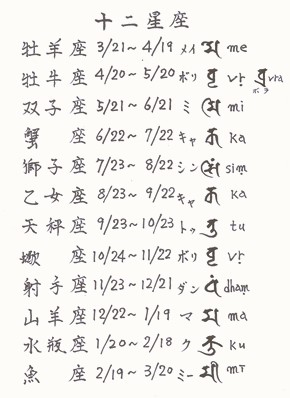 十二星座
牡羊座 3/21~4/19 メイ 𑖦𑖸 me
牡牛座 4/20~5/20 ボリ 𑖪𑖴 vṛ 𑖪𑖿𑖨 vra
ボラ
双子座 5/21~6/21 ミ 𑖦𑖰 mi
蟹座 6/22~7/22 キャ 𑖎 ka
獅子座 7/23~8/22 シン 𑖭𑖰𑖽 siṃ
乙女座 8/23~9/22 キャ 𑖎 ka
天秤座 9/23~10/23 トゥ 𑖝𑖲 tu
蠍座 10/24~11/22 ボリ 𑖪𑖴 vṛ
射手座 11/23~12/21 ダン 𑖠𑖽 dhaṃ
山羊座 12/22~1/19 マ 𑖦 ma
水瓶座 1/20~2/18 ク 𑖎𑖲 ku
魚座 2/19~3/20 ミー 𑖦𑖱 mī